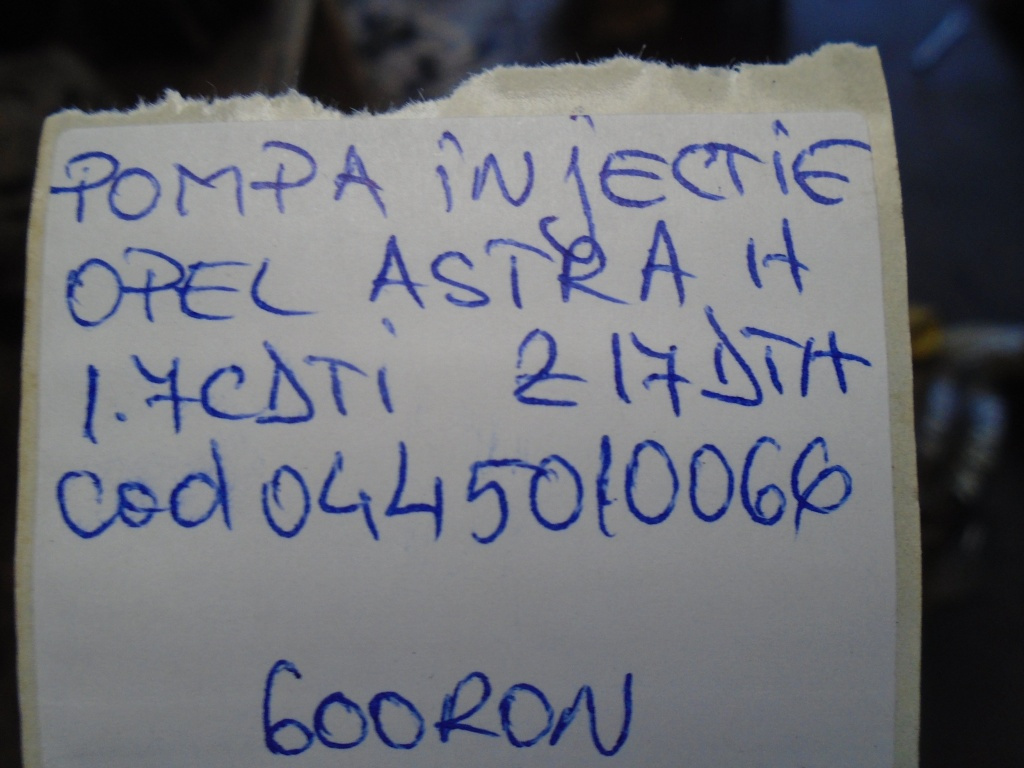 POMPA iNjECTiE
OPEL ASTRA H
1.7CDTi Z17DTH
cod 0445010066
600RON